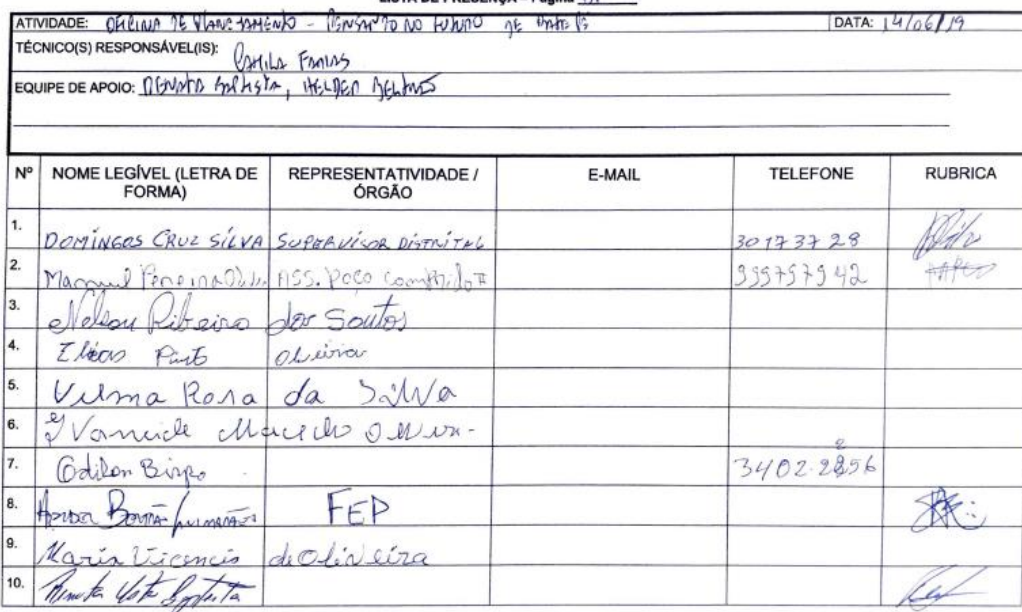 LISTA DE PRESENÇA - Página
ATIVIDADE: OFICINA DE PLANEJAMENTO - PENSANDO NO FUTURO DE DATA: 14/06/19
TÉCNICO(S) RESPONSÁVEL(IS): CAMILA FARIAS
EQUIPE DE APOIO: RENATA BATISTA, HELDER
Nº NOME LEGÍVEL (LETRA DE FORMA) REPRESENTATIVIDADE / ÓRGÃO E-MAIL TELEFONE RUBRICA
1. DOMINGOS CRUZ SILVA SUPERVISOR DISTRITAL 30173728
2. Manuel Pereira ASS. Poço Comprido II 999797942
3. Nelson Ribeiro dos Santos
4. Elias Oliveira
5. Vilma Rosa da Silva
6. Ivaneide Macedo Oliveira
7. Odilon Bispo 3402-2256
8. Guimarães FEP
9. Maria Vicencia de Oliveira
10. Renata